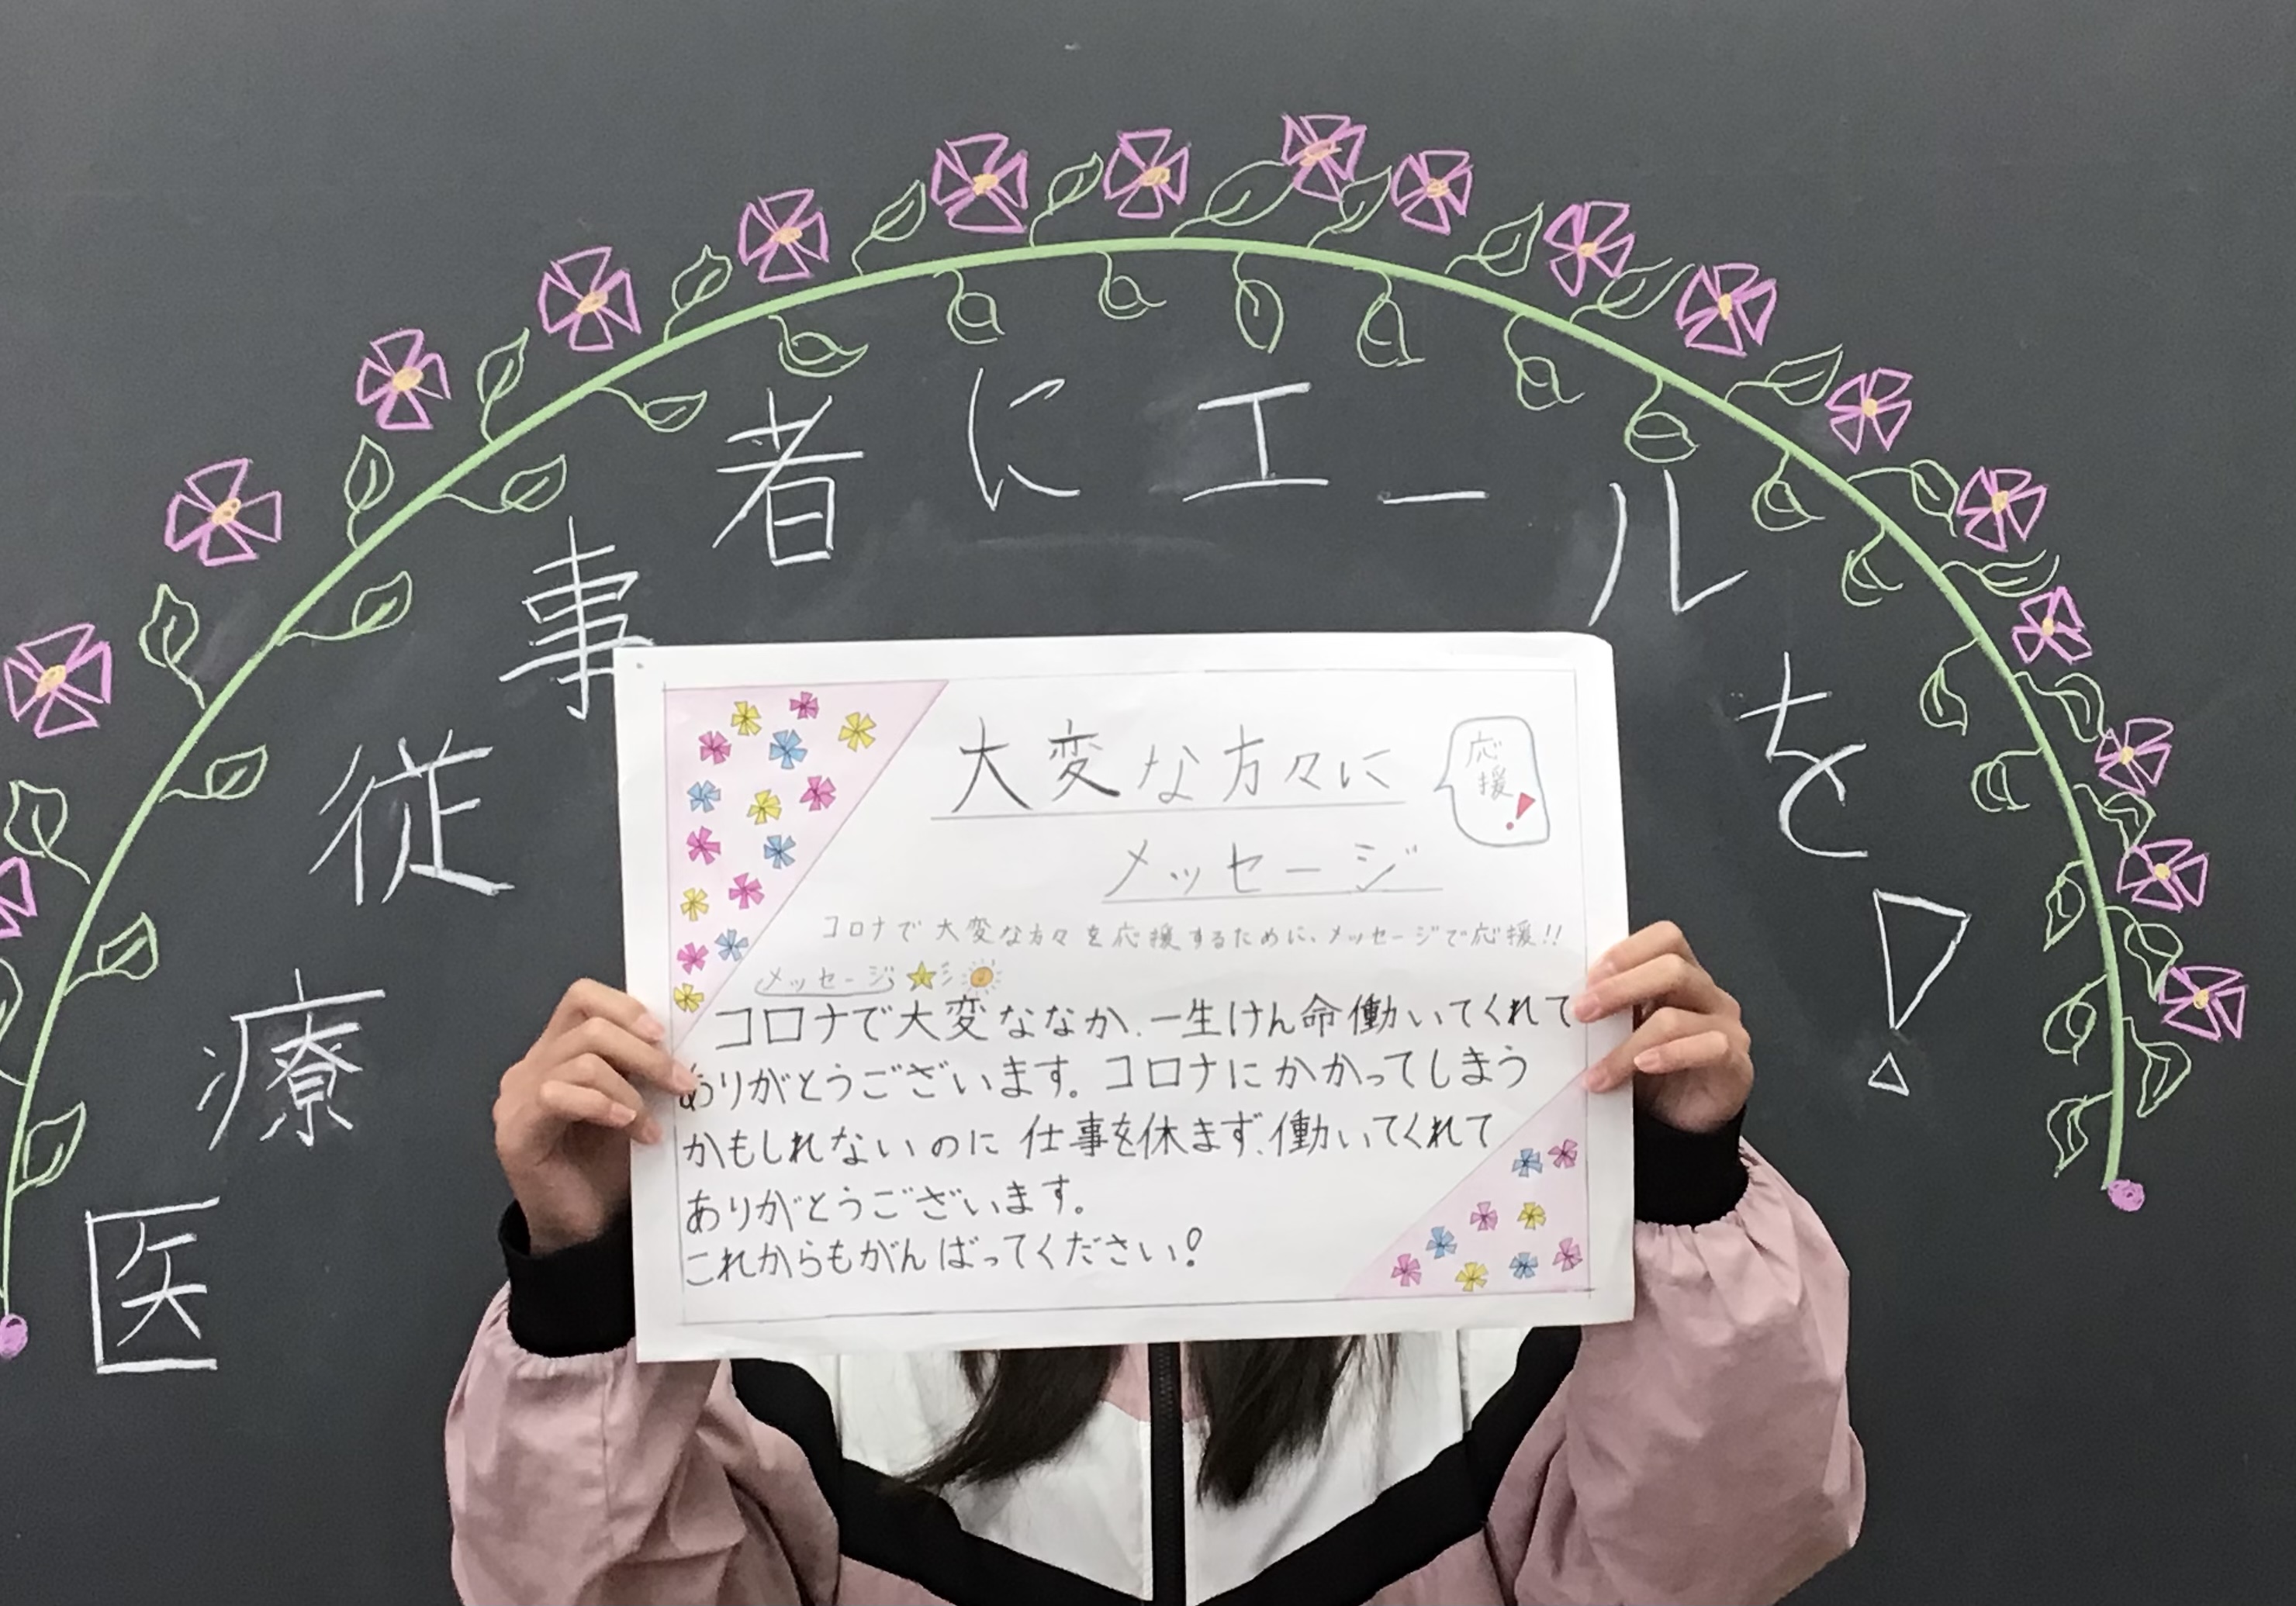 医療従事者にエールを!
大変な方々に
メッセージ
応
援!
コロナで大変な方々を応援するために、メッセージで応援!!
メッセージ
コロナで大変ななか、一生けん命働いてくれて
ありがとうございます。コロナにかかってしまう
かもしれないのに仕事を休まず、働いてくれて
ありがとうございます。
これからもがんばってください!